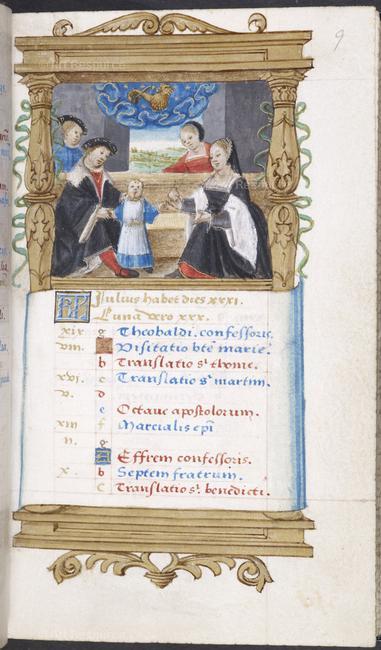 9
Julius habet dies xxxi.
Luna vero xxx.
xix g Theobaldi. confessoris.
viii. A Visitatio bte marie.
b Translatio sti thome.
xvi. c Translatio sti martini.
v. d
e Octave apostolorum.
xiii f Marcialis epi
ii. g
A Effrem confessoris.
x. b Septem fratrum.
c Translatio sti benedicti.